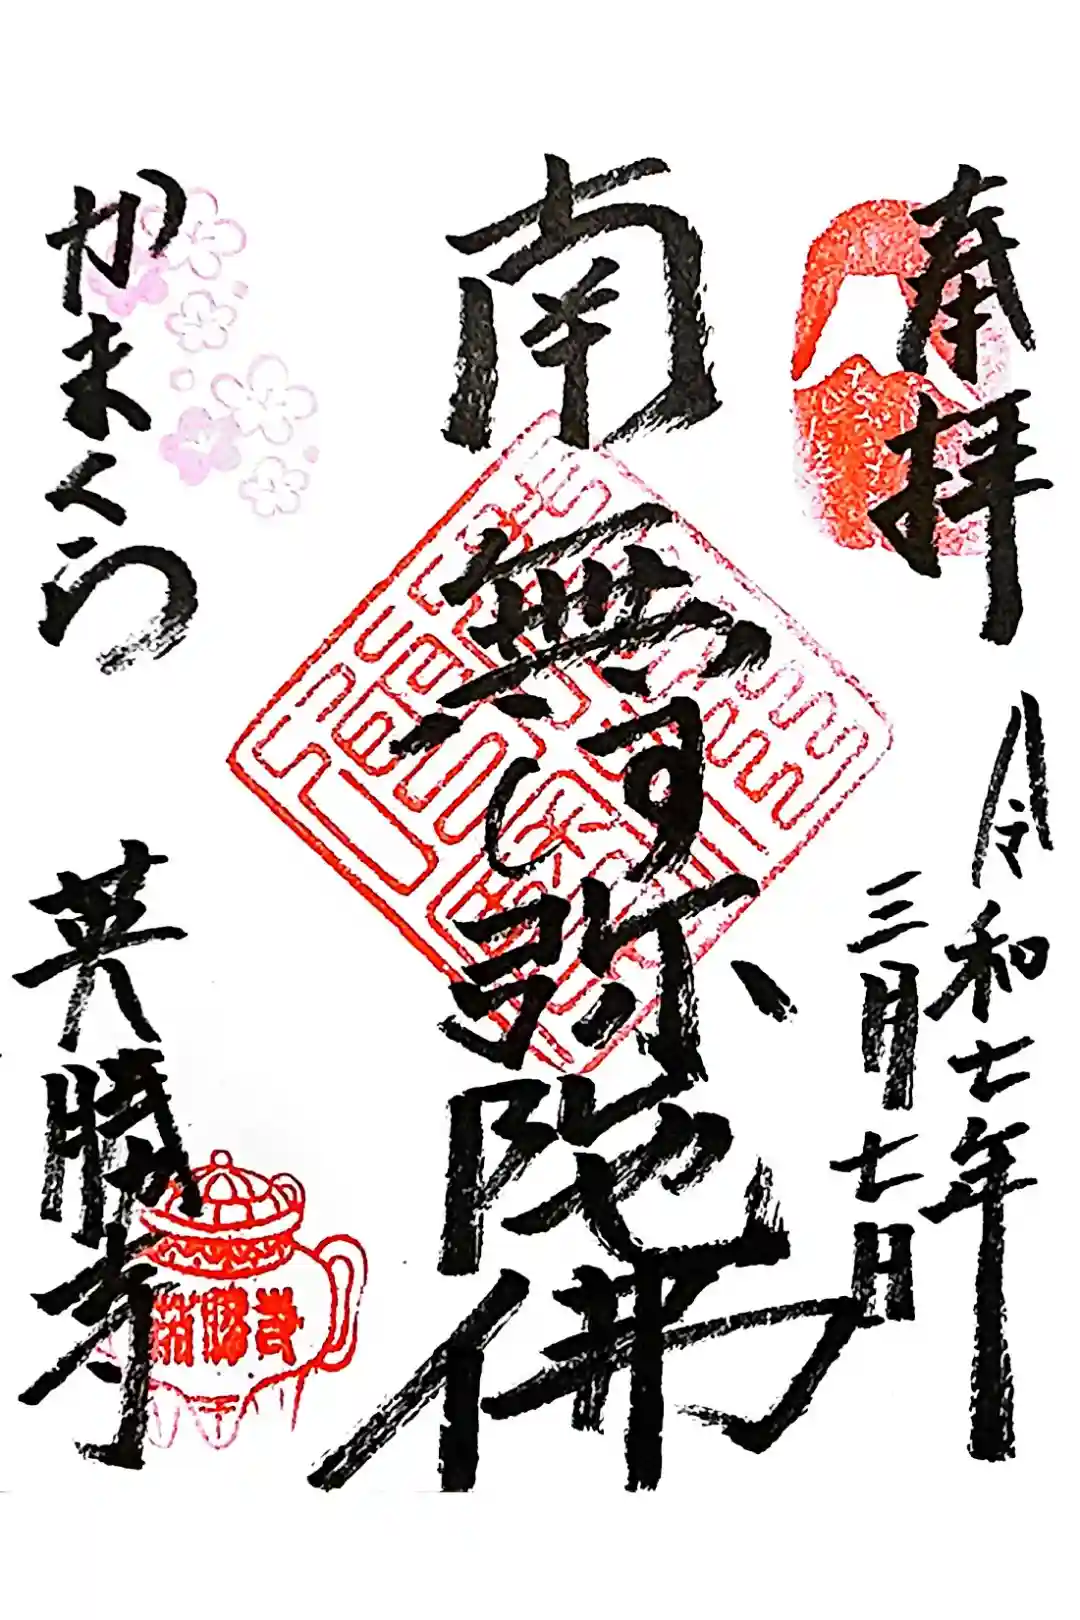 奉拝
令和七年
三月七日
南無阿弥陀佛
かまくら
英勝寺
英勝寺